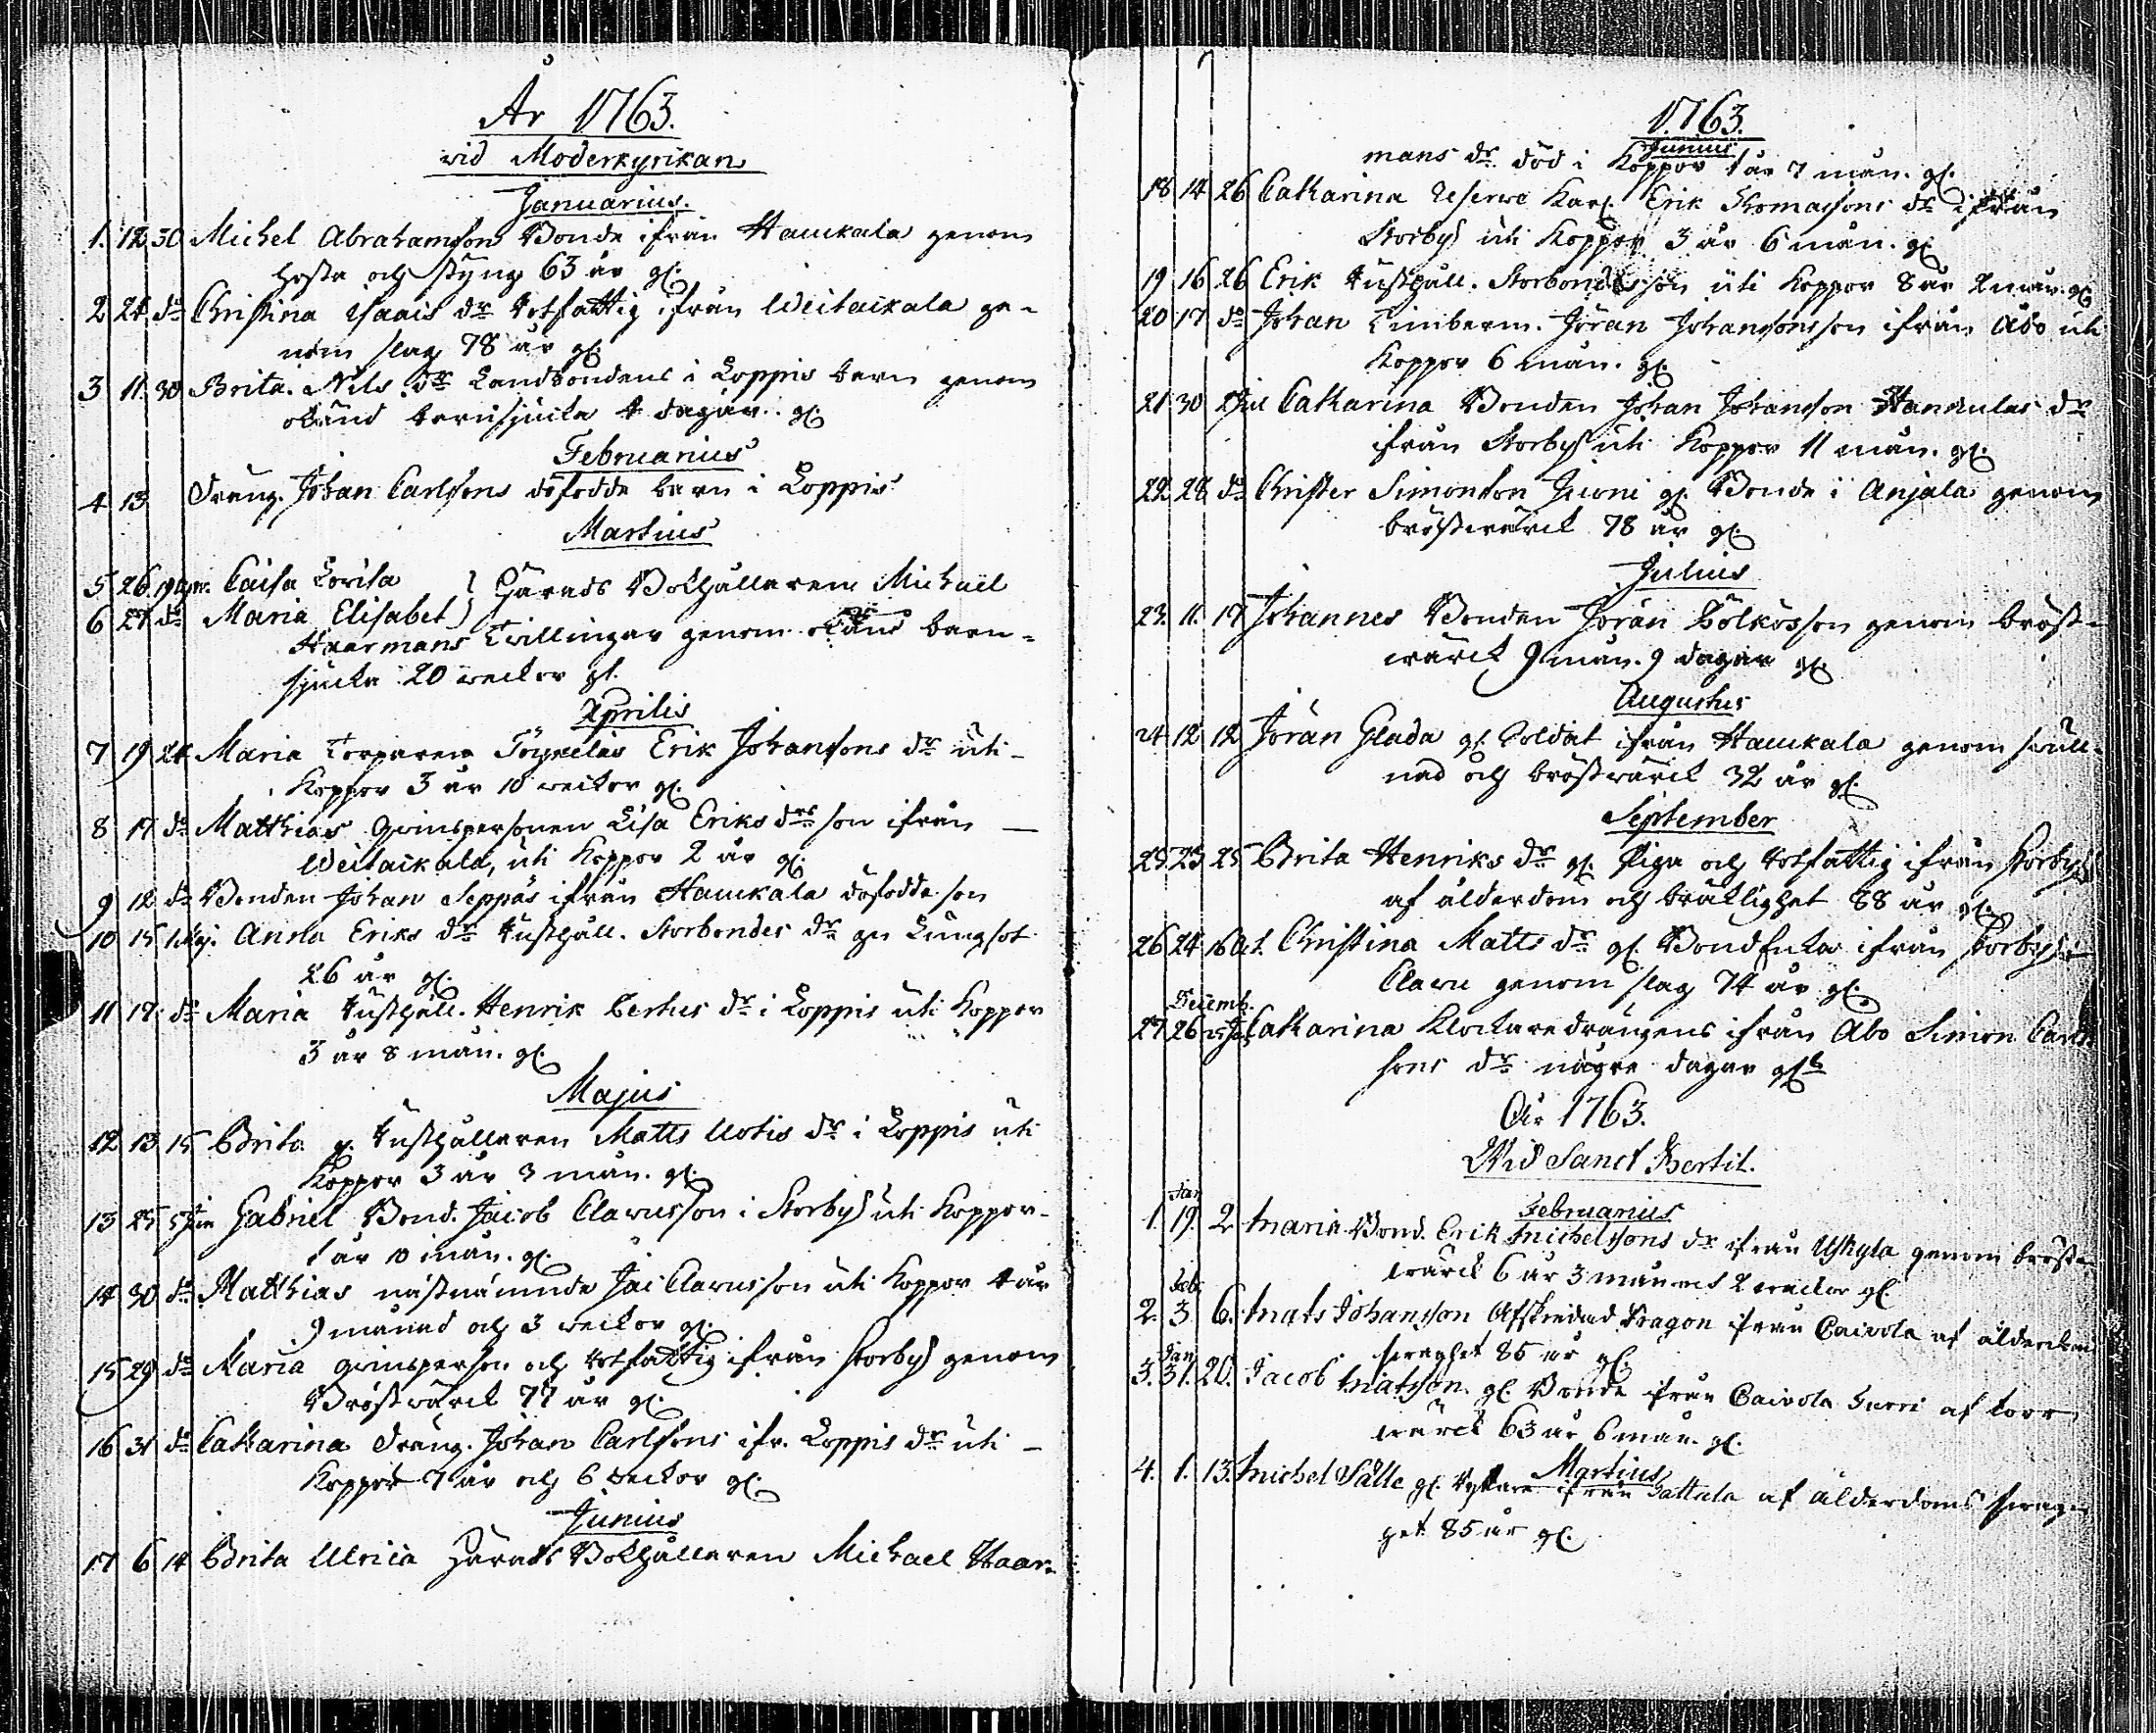 År 1763.
vid Moderkyrkan
Januarius.
1. 12 30 Michel Abrahamsson Bonde ifrån Haukala genom
hosta och styng 63 år gl.
2 24 do Christina Isaais dr Rotfattig ifrån Weitaickala ge-
nom slag 78 år gl.
3 11. 30 Brita Nils dr Landbondens i Loppis barn genom
okänd barnsjucka 4 dagar. gl.
Februarius
4 13 Dräng. Johan Carlssons döfödde barn i Loppis
Martius
5 26. 19 Apr. Caisa Lovisa } Härads Bokhållaren Michaël
6 27 do Maria Elisabet }
Haarmans Tvillingar genom okänd barn-
sjucka 20 weckor gl.
Aprilis
7 19 24 Maria Torparen Erik Johanssons dr uti
Koppor 3 år 10 weckor gl.
8 17 do Matthias Qvinspersonen Lisa Eriks drs son ifrån
Weitaickala, uti Koppor 2 år gl.
9 12 do Bonden Johan Seppäs ifrån Haukala döfödde son
10 15 1 Maj. Anna Eriks dr Rusthåll. Storbondes dr gm Lungsot
26 år gl.
11 17. do Maria Rusthåll. Henrik Bertus dr i Loppis uti Koppor
3 år 8 mån. gl.
Majus
12 13 15 Brita g. Rusthållaren Matts Uotis dr i Loppis uti
Koppor 3 år 3 mån. gl.
13 25 5 Jun Gabriel Bond. Jacob Clarusson i Storby uti Koppor
1 år 10 mån. gl.
14 30 do Matthias nästnämnde Jac Clarusson uti Koppor 4 år
9 månad och 3 weckor gl.
15 29 do Maria qvinsperson och Rotfattig ifrån Storby genom
Bröstwärck 77 år gl.
16 31 do Catharina Dräng. Johan Carlssons ifr. Loppis dr uti
Koppor 7 år och 6 weckor gl.
Junius
17 6 14 Brita Ulrica Härads Bokhållaren Michael Haar-
1763.
Junius
mans dr död i Koppor 1 år 7 mån. gl.
18 14 26 Catharina Reserve Karl. Erik Thomassons dr ifrån
Storby uti Koppor 3 år 6 mån. gl
19 16 26 Erik Rusthåll. Storbondes son uti Koppor 8 år 2 mån. gl
20 17 do Johan Timberm. Jöran Johanssons son ifrån Åbo uti
Koppor 6 mån. gl.
21 30 Catharina Bonden Johan Johansson Hannulas dr
ifrån Storby uti Koppor 11 mån. gl.
22 28 do Christer Simonson gl. Bonde i Anjala genom
bröstwärck 78 år gl.
Julius
23. 11. 17 Johannes Bonden Jöran Bölkös son genom bröst-
wärck 9 mån. 9 dagar gl.
Augustus
24 12 12 Jöran Glada gl. Soldat ifrån Haukala genom swull-
nad och bröstwärck 32 år gl.
September
25 25 25 Brita Henriks dr gl. Piga och Rotfattig ifrån Storby
af ålderdom och bräcklighet 88 år gl.
26 24 16 Oct. Christina Matts dr gl. Bond Enka ifrån Storby
Claru genom slag 74 år gl.
Decemb.
27 26 Catharina Klockaredrängens ifrån Åbo Simon Carls-
sons dr några dagar gl.
År 1763.
Wid Sanct Bertil.
Februarius
Jan
1. 19. 2 Maria Bond. Erik Michelssons dr ifrån Uskyla genom bröst-
wärck 6 år 3 månad 2 weckor gl.
Feb.
2. 3 6. Mats Johansson Afskedad Dragon ifrån Caivola af ålderdoms
swaghet 85 år gl.
Jan
3. 31. 20. Jacob Matsson gl. Bonde ifrån Caivola af torr
wärck 63 år 6 mån. gl.
Martius
4. 1. 13. Michel Sålle gl. Ryttare ifrån Sattula af ålderdoms swag-
het 85 år gl.